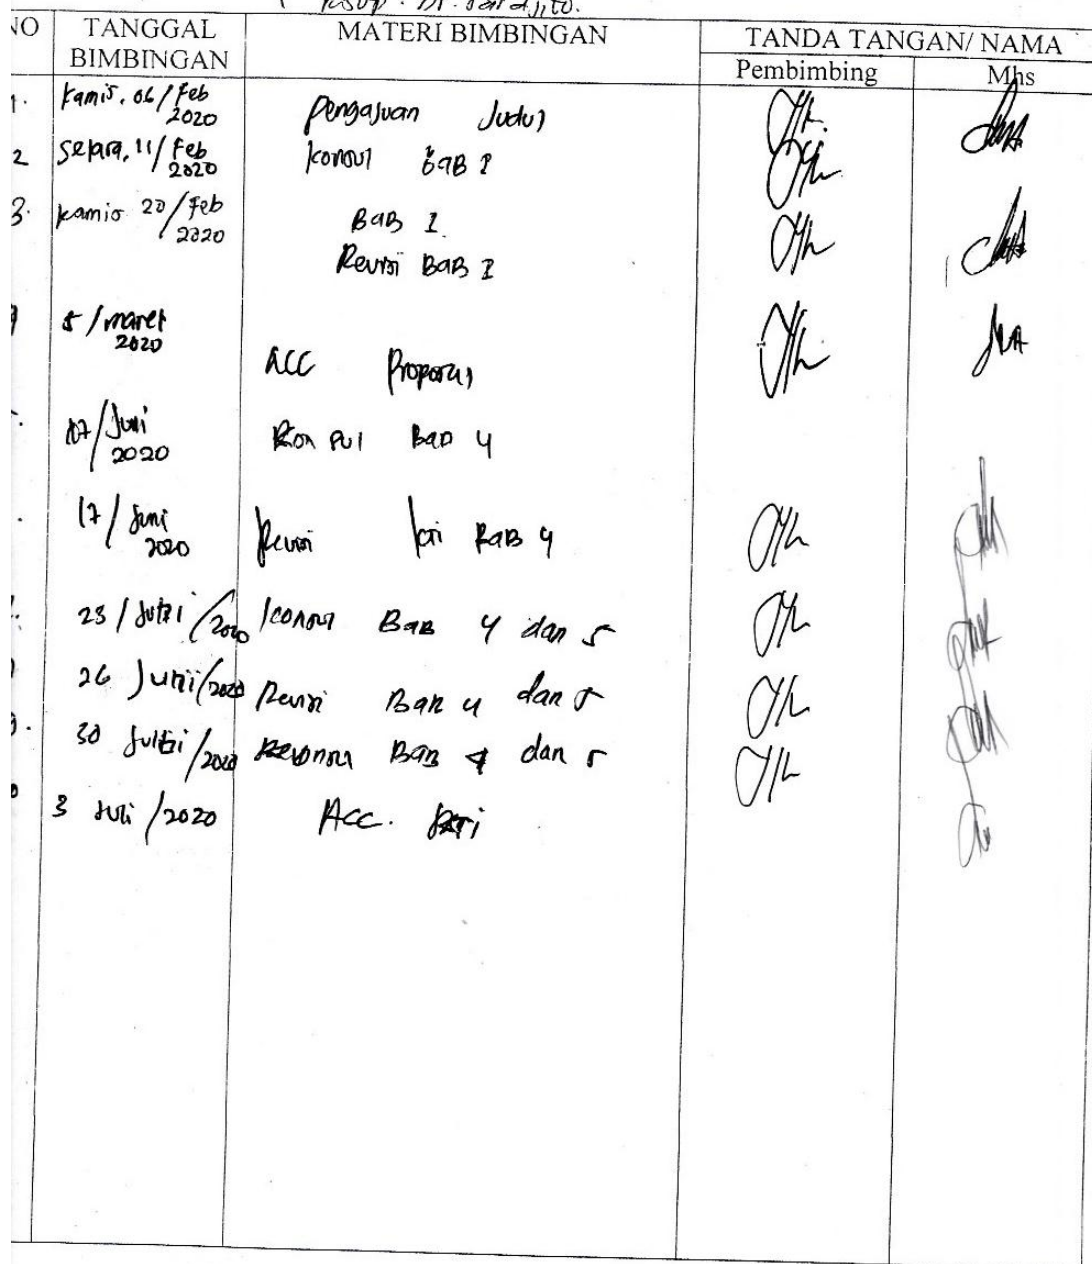 RSUP. Dr. Sardjito.
NO TANGGAL BIMBINGAN MATERI BIMBINGAN TANDA TANGAN/ NAMA
Pembimbing Mhs
1. Kamis, 06/Feb 2020 Pengajuan Judul
2 Selasa, 11/Feb 2020 Konsul BAB I
3. Kamis 20/Feb 2020 BAB I.
Revisi BAB I
5/maret 2020
ACC Proposal
07/Juni 2020 Konsul Bab 4
17/Juni 2020 Revisi Isi BAB 4
23/Juni/2020 Konsul BAB 4 dan 5
26 Juni/2020 Revisi BAB 4 dan 5
30 Juni/2020 BAB 4 dan 5
3 Juli/2020 Acc. KTI